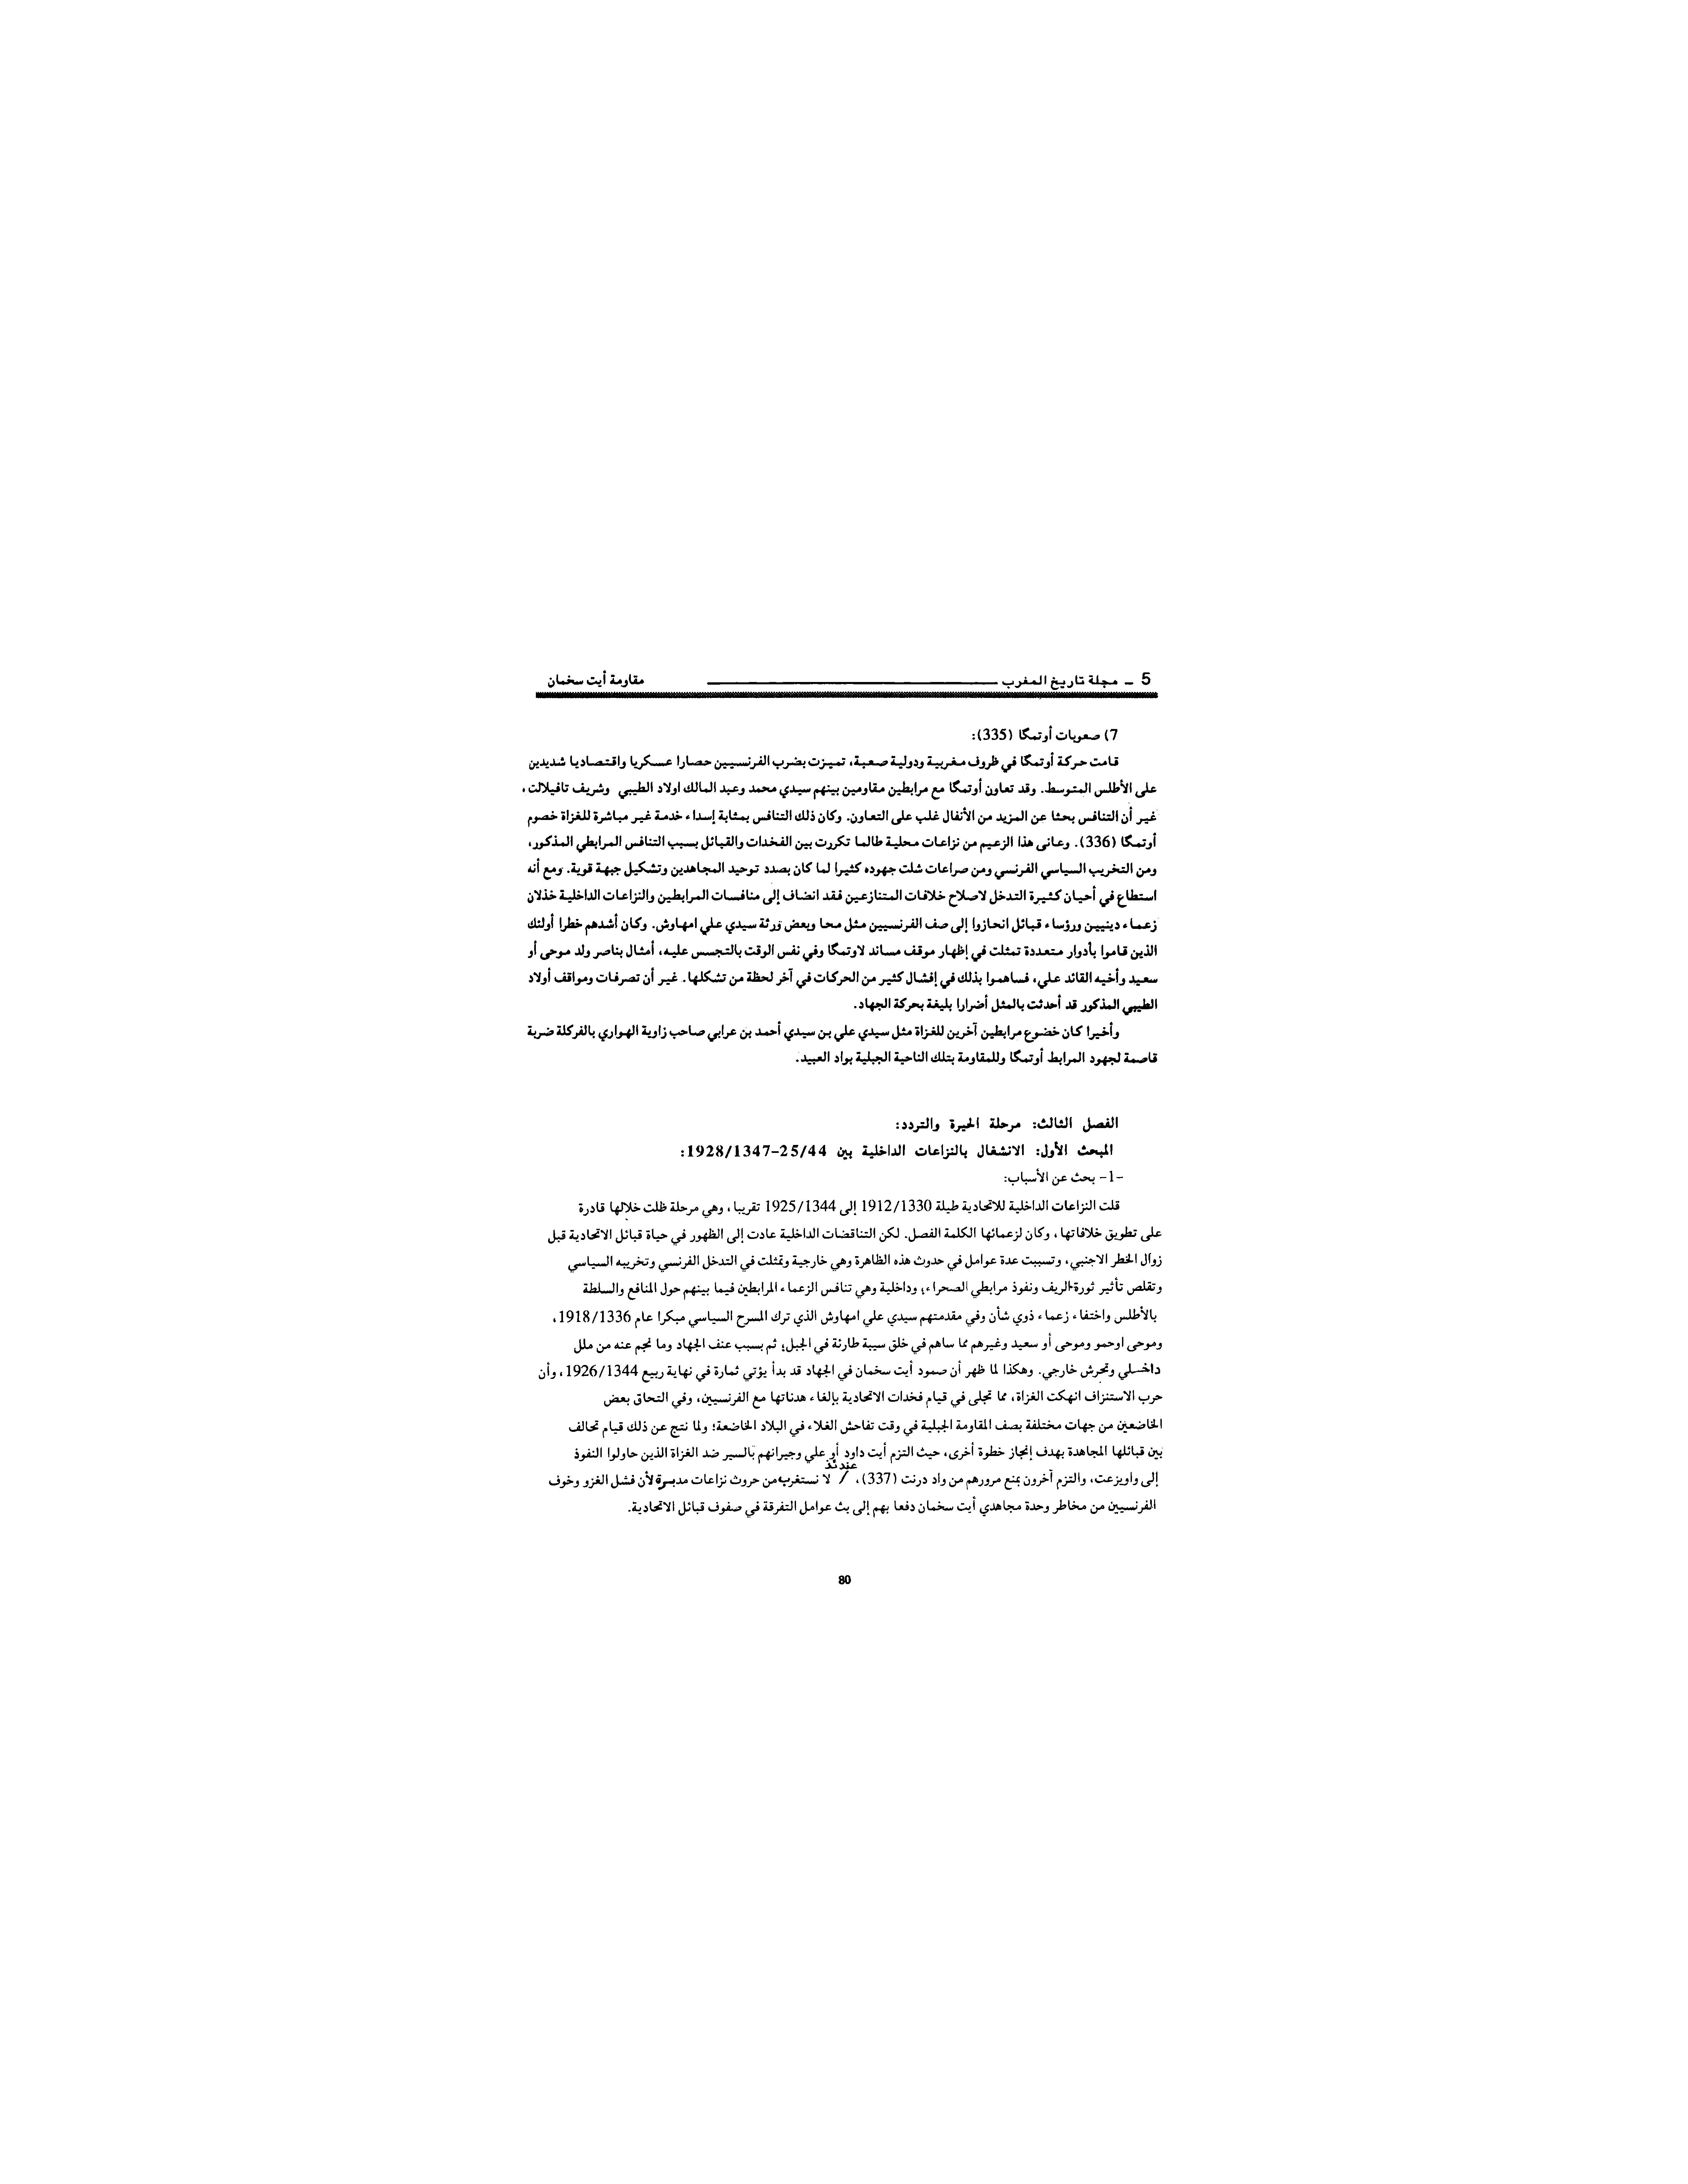 5 – مجلة تاريخ المغرب
مقاومة أيت سخمان
7) صعوبات أوتمگا (335):
قامت حركة أوتمگا في ظروف مغربية ودولية صعبة، تميزت بضرب الفرنسيين حصارا عسكريا واقتصاديا شديدين
على الأطلس المتوسط. وقد تعاون أوتمگا مع مرابطين مقاومين بينهم سيدي محمد وعبد المالك اولاد الطيبي وشريف تافيلالت،
غير أن التنافس بحثا عن المزيد من الأنفال غلب على التعاون. وكان ذلك التنافس بمثابة إسداء خدمة غير مباشرة للغزاة خصوم
أوتمگا (336). وعانى هذا الزعيم من نزاعات محلية طالما تكررت بين الفخدات والقبائل بسبب التنافس المرابطي المذكور،
ومن التخريب السياسي الفرنسي ومن صراعات شلت جهوده كثيرا لما كان بصدد توحيد المجاهدين وتشكيل جبهة قوية. ومع أنه
استطاع في أحيان كثيرة التدخل لاصلاح خلافات المتنازعين فقد انضاف إلى منافسات المرابطين والنزاعات الداخلية خذلان
زعماء دينيين ورؤساء قبائل انحازوا إلى صف الفرنسيين مثل محا وبعض ورثة سيدي علي امهاوش. وكان أشدهم خطرا أولئك
الذين قاموا بأدوار متعددة تمثلت في إظهار موقف مساند لاوتمگا وفي نفس الوقت بالتجسس عليه، أمثال بناصر ولد موحى أو
سعيد وأخيه القائد علي، فساهموا بذلك في إفشال كثير من الحركات في آخر لحظة من تشكلها. غير أن تصرفات ومواقف أولاد
الطيبي المذكور قد أحدثت بالمثل أضرارا بليغة بحركة الجهاد.
وأخيرا كان خضوع مرابطين آخرين للغزاة مثل سيدي علي بن سيدي أحمد بن عرابي صاحب زاوية الهواري بالفركلة ضربة
قاصمة لجهود المرابط أوتمگا وللمقاومة بتلك الناحية الجبلية بواد العبيد.
الفصل الثالث: مرحلة الحيرة والتردد:
المبحث الأول: الانشغال بالنزاعات الداخلية بين 25/44-1928/1347:
-1- بحث عن الأسباب:
قلت النزاعات الداخلية للاتحادية طيلة 1912/1330 إلى 1925/1344 تقريبا، وهي مرحلة ظلت خلالها قادرة
على تطويق خلافاتها، وكان لزعمائها الكلمة الفصل. لكن التناقضات الداخلية عادت إلى الظهور في حياة قبائل الاتحادية قبل
زوال الخطر الاجنبي، وتسببت عدة عوامل في حدوث هذه الظاهرة وهي خارجية وتمثلت في التدخل الفرنسي وتخريبه السياسي
وتقلص تأثير ثورة الريف ونفوذ مرابطي الصحراء؛ وداخلية وهي تنافس الزعماء المرابطين فيما بينهم حول المنافع والسلطة
بالأطلس واختفاء زعماء ذوي شأن وفي مقدمتهم سيدي علي امهاوش الذي ترك المسرح السياسي مبكرا عام 1918/1336،
وموحى اوحمو وموحى أو سعيد وغيرهم مما ساهم في خلق سيبة طارئة في الجبل؛ ثم بسبب عنف الجهاد وما نجم عنه من ملل
داخلي وتحرش خارجي. وهكذا لما ظهر أن صمود أيت سخمان في الجهاد قد بدأ يؤتي ثمارة في نهاية ربيع 1926/1344، وأن
حرب الاستنزاف انهكت الغزاة، مما تجلى في قيام فخدات الاتحادية بإلغاء هدناتها مع الفرنسيين، وفي التحاق بعض
الخاضعين من جهات مختلفة بصف المقاومة الجبلية في وقت تفاحش الغلاء في البلاد الخاضعة؛ ولما نتج عن ذلك قيام تحالف
بين قبائلها المجاهدة بهدف إنجاز خطوة أخرى، حيث التزم أيت داود أو علي وجيرانهم بالسير ضد الغزاة الذين حاولوا النفوذ
عندئذ
إلى واويزعت، والتزم آخرون بمنع مرورهم من واد درنت (337)، / لا نستغرب من حروث نزاعات مدبرة لأن فشل الغزو وخوف
الفرنسيين من مخاطر وحدة مجاهدي أيت سخمان دفعا بهم إلى بث عوامل التفرقة في صفوف قبائل الاتحادية.
80